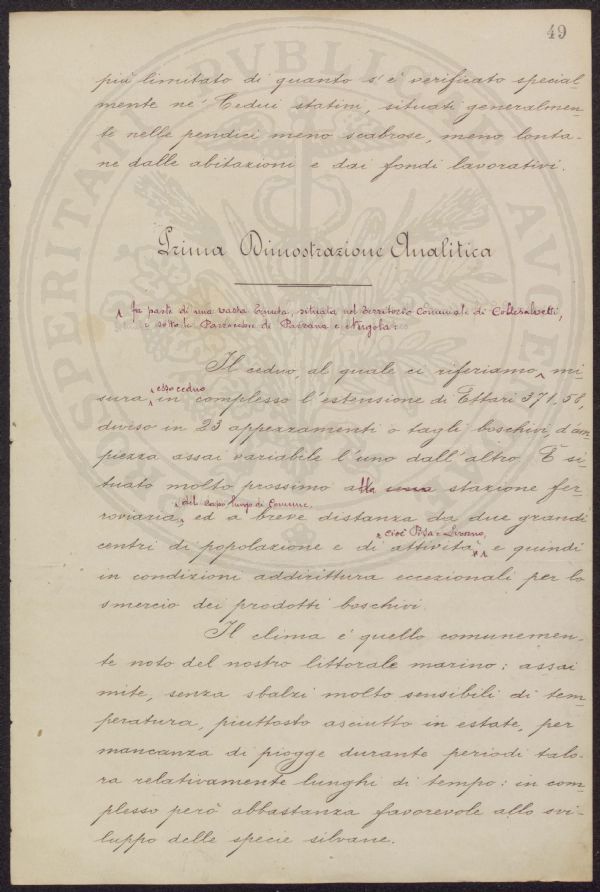 49
più limitato di quanto s'è verificato special-
mente ne' Cedui statini, situati generalmen-
te nelle pendici meno scabrose, meno lonta-
ne dalle abitazioni e dai fondi lavorativi.
Prima Dimostrazione Analitica
fa parte di una vasta Tenuta, situata nel territorio Comunale di Collesalvetti,
e sotto le Parrocchie di Parrana e Nugola:
Il ceduo, al quale ci riferiamo, mi-
esso ceduo
sura, in complesso l'estensione di Ettari 371,58,
diviso in 23 appezzamenti o tagli boschivi, d'am-
piezza assai variabile l'uno dall'altro. È si-
tuato molto prossimo alla una stazione fer-
del capo luogo di Comune,
roviaria, ed a breve distanza da due grandi
cioè Pisa e Livorno,
centri di popolazione e di attività, e quindi
in condizioni addirittura eccezionali per lo
smercio dei prodotti boschivi.
Il clima è quello comunemen-
te noto del nostro littorale marino: assai
mite, senza sbalzi molto sensibili di tem-
peratura, piuttosto asciutto in estate, per
mancanza di piogge durante periodi talo-
ra relativamente lunghi di tempo: in com-
plesso però abbastanza favorevole allo svi-
luppo delle specie silvane.